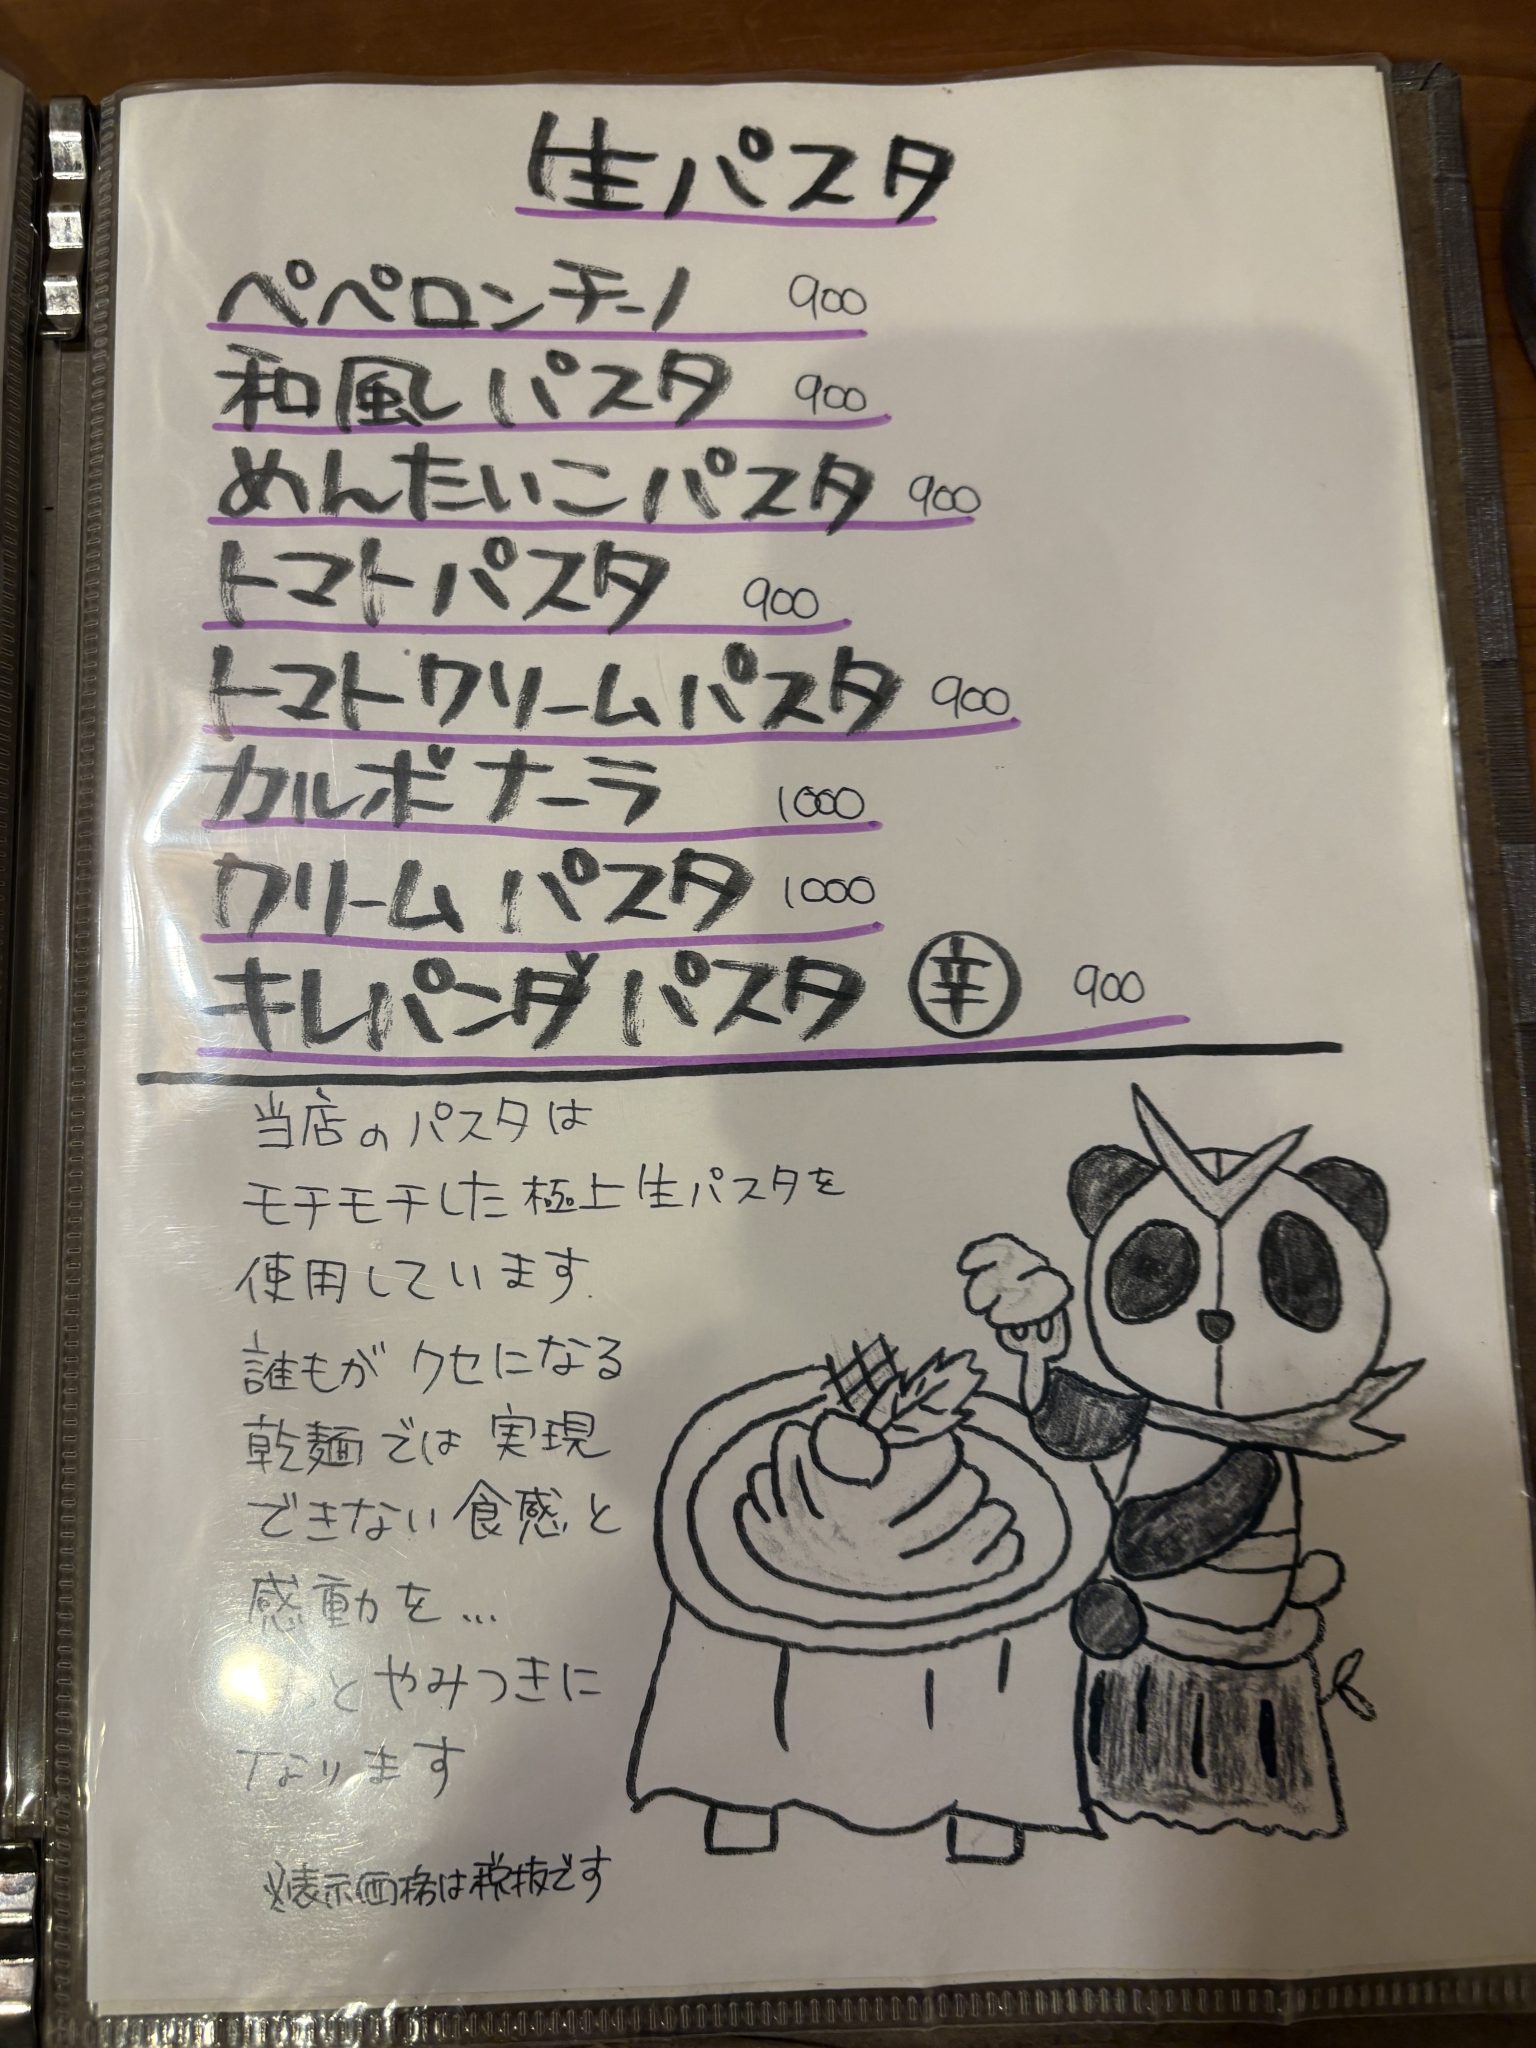 生パスタ
ペペロンチーノ 900
和風パスタ 900
めんたいこパスタ 900
トマトパスタ 900
トマトクリームパスタ 900
カルボナーラ 1000
クリームパスタ 1000
キレパンダパスタ 辛 900
当店のパスタは
モチモチした極上生パスタを
使用しています.
誰もがクセになる
乾麺では実現
できない食感と
感動を...
っとやみつきに
なります
※表示価格は税抜です